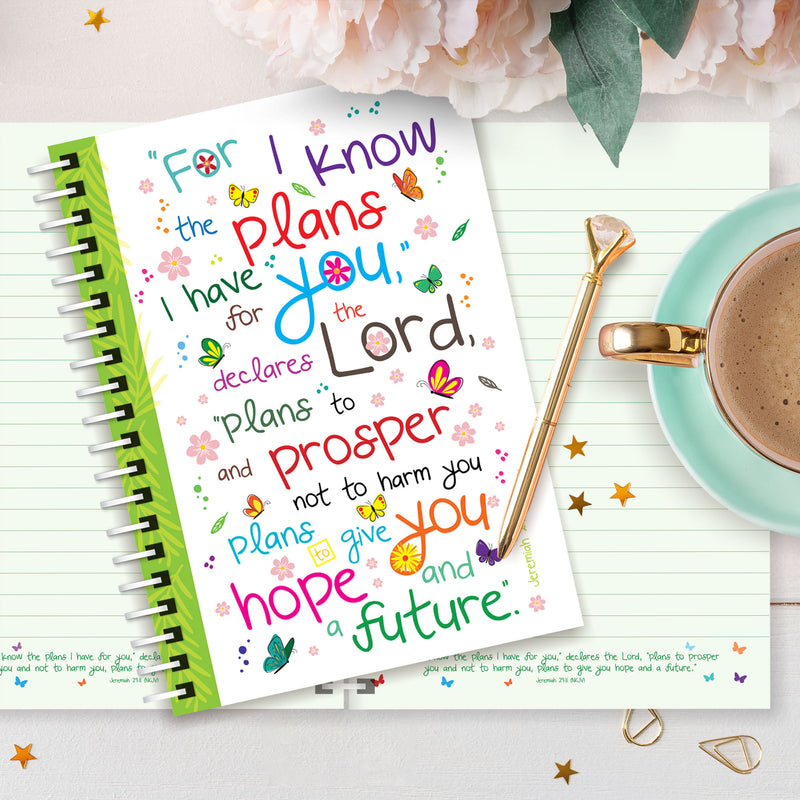 "For I know
the plans
I have for you,"
declares the Lord,
"plans to
and prosper
not to harm you
plans to give you
hope and
a future."
Jeremiah
know the plans I have for you," decla
you and not to harm you, plans to
Jeremiah 29:11 (NKJV)
know the plans I have for you," declares the Lord, "plans to prosper
you and not to harm you, plans to give you hope and a future."
Jeremiah 29:11 (NKJV)